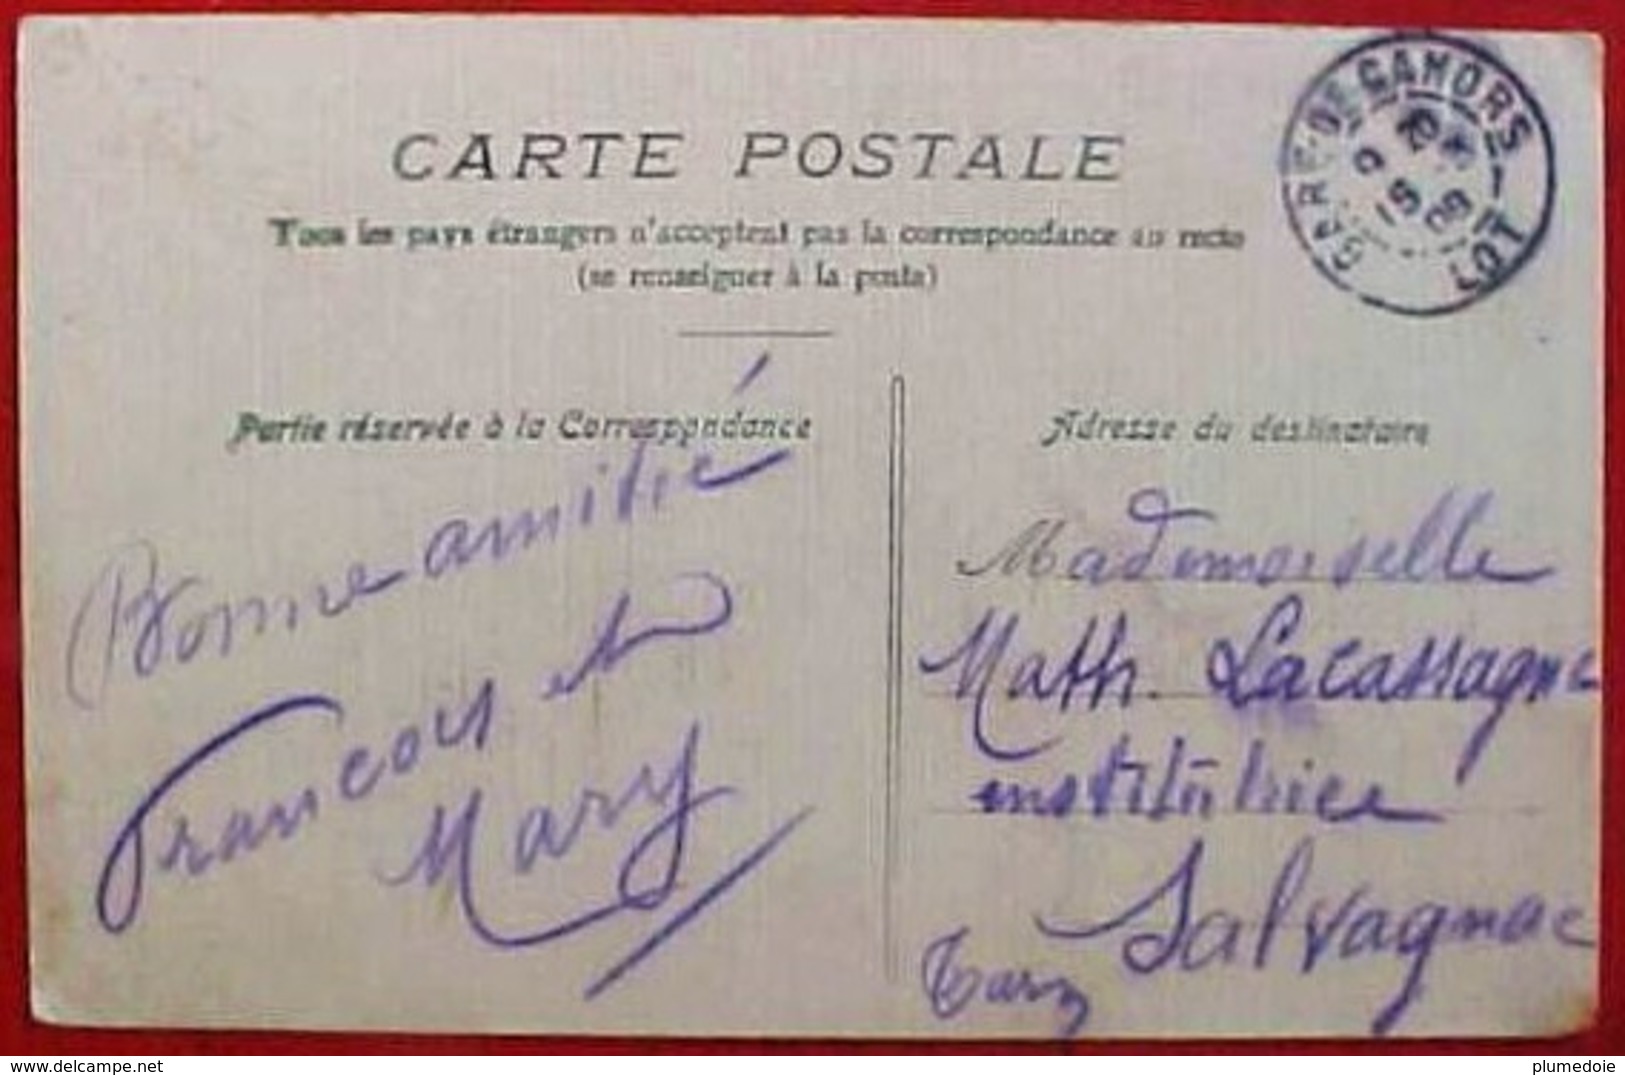 CARTE POSTALE
Tous les pays étrangers n'acceptent pas la correspondance au recto
(se renseigner à la poste)
GARE-DE CAHORS
LOT
Partie réservée à la Correspondance
Bonne amitié
Francois et
Mary
Adresse du destinataire
Mademoiselle
Math. Lacassagne
institutrice
Salvagnac
Tarn
delcampe.net
plumedoie